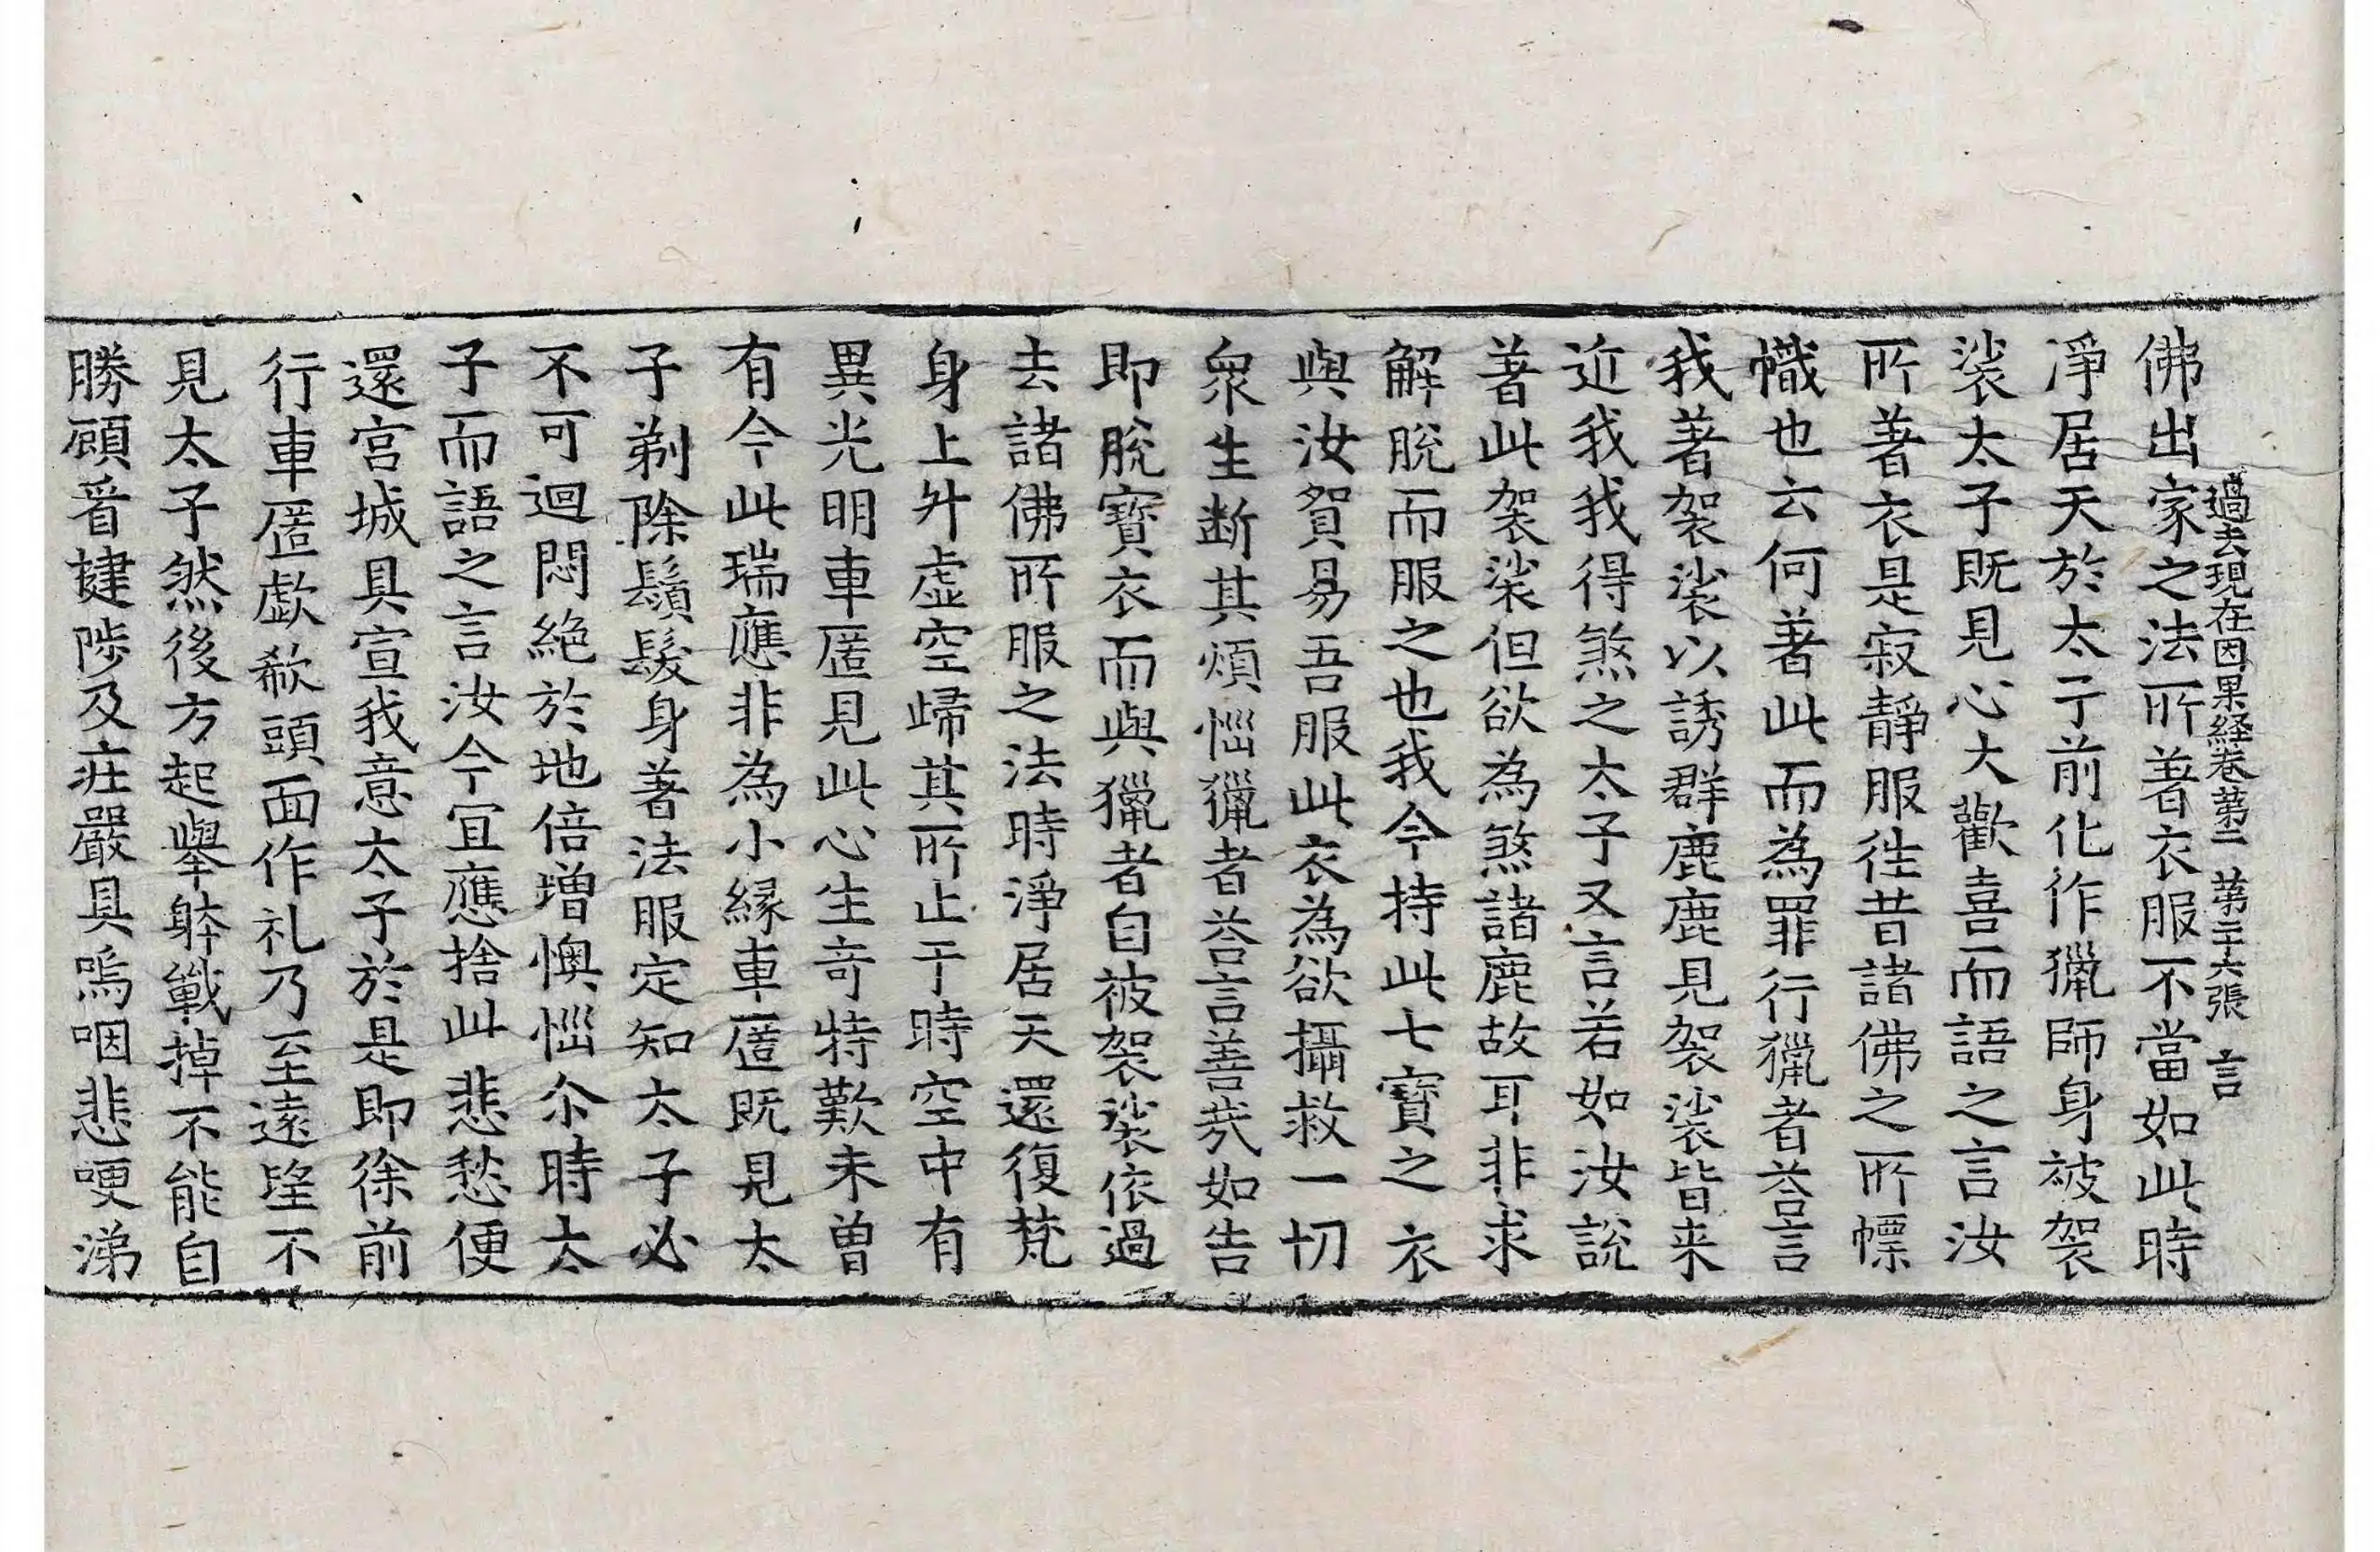 過去現在因果経卷第二 第二十六張 言
佛出家之法所著衣服不當如此時
淨居天於太子前化作獵師身被袈
裟太子既見心大歡喜而語之言汝
所著衣是寂靜服徃昔諸佛之所幖
幟也云何著此而為罪行獵者荅言
我著袈裟以誘群鹿鹿見袈裟皆来
近我我得煞之太子又言若如汝説
著此袈裟但欲為煞諸鹿故耳非求
解脫而服之也我今持此七寶之衣
與汝貿易吾服此衣為欲攝救一切
衆生断其煩惱獵者荅言善㢤如告
即脫寶衣而與獵者自被袈裟依過
去諸佛所服之法時淨居天還復梵
身上升虛空歸其所止于時空中有
異光明車匿見此心生竒特歎未曾
有今此瑞應非為小縁車匿既見太
子剃除鬚髮身著法服定知太子必
不可迴悶絕於地倍增懊惱尒時太
子而語之言汝今宜應捨此悲愁便
還宮城具宣我意太子於是即徐前
行車匿歔欷頭面作礼乃至遠望不
見太子然後方起舉躰戰掉不能自
勝顧看揵陟及莊嚴具嗚咽悲哽涕